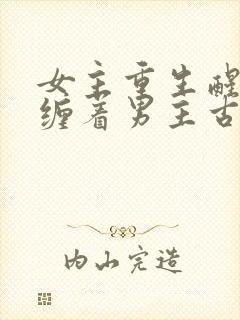 女主重生醒
缠着男主古
内山完造